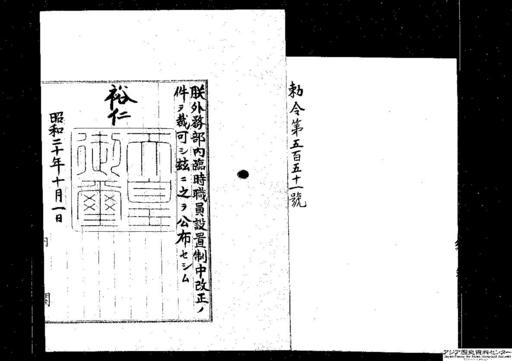 勅令第五百五十一號
朕外務部內臨時職員設置制中改正ノ
件ヲ裁可シ玆ニ之ヲ公布セシム
裕仁
天皇御璽
昭和二十年十月一日
内
閣
アジア歴史資料センター